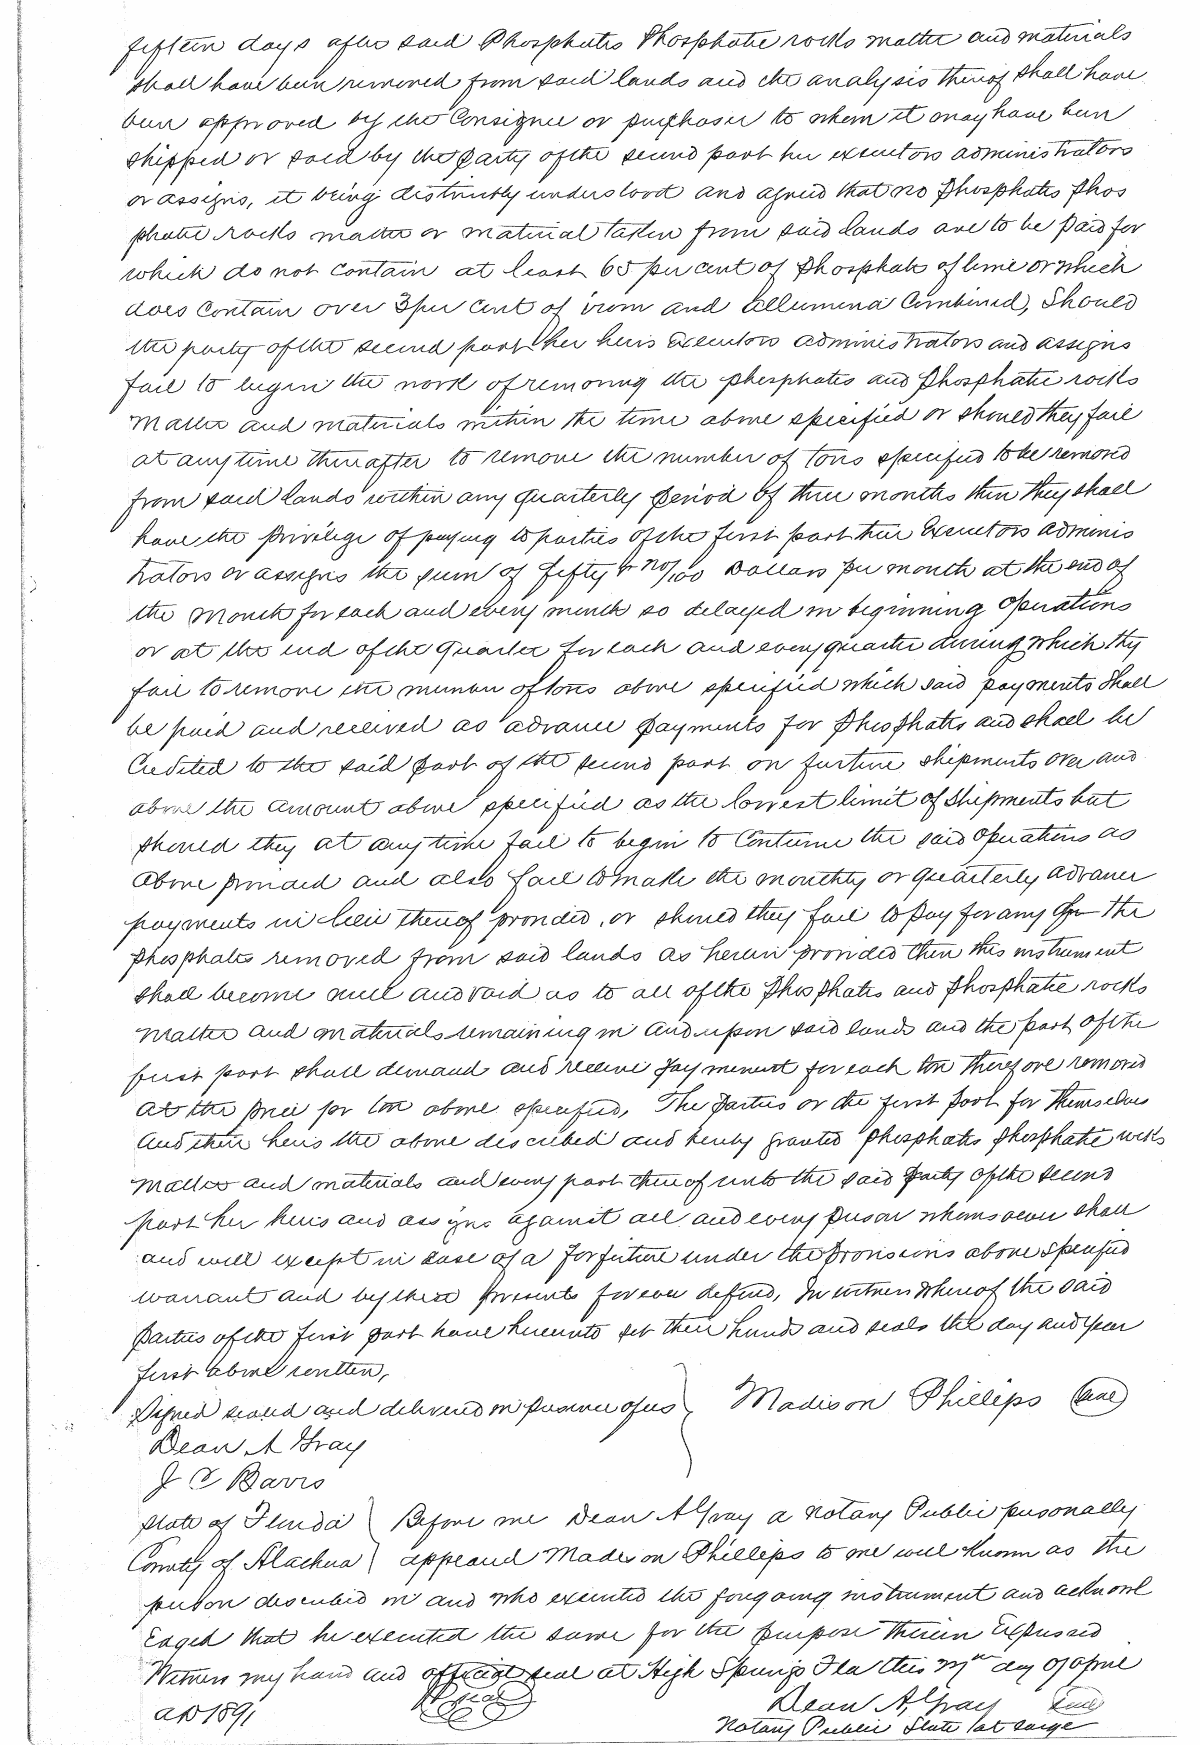 fifteen days after said Phosphates Phosphatic rocks matter and materials
shall have been removed from said lands and the analysis thereof shall have
been approved by the Consignee or purchaser to whom it may have been
shipped or sold by the party of the second part her executors administrators
or assigns, it being distinctly understood and agreed that no Phosphates Phos
phatic rocks matter or material taken from said lands are to be paid for
which do not contain at least 65 per cent of Phosphate of lime or which
does contain over 3 per cent of iron and Allumina Combined, Should
the party of the second part her heirs Executors administrators and assigns
fail to begin the work of removing the phosphates and Phosphatic rocks
Matter and materials within the time above specified or should they fail
at any time thereafter to remove the number of tons specified to be removed
from said lands within any quarterly period of three months then they shall
have the privilege of paying to parties of the first part their Executors Adminis
trators or assigns the sum of fifty & no/100 Dollars per month at the end of
the Month for each and every month so delayed in beginning Operations
or at the end of the Quarter for each and every quarter during which they
fail to remove the number of tons above specified which said payments Shall
be paid and received as advance payments for Phosphates and shall be
Credited to the said part of the second part on further shipments over and
above the amount above specified as the lowest limit of Shipments but
should they at any time fail to begin to Continue the said Operations as
Above provided and also fail to make the monthly or Quarterly Advance
payments in lieu thereof provided, or should they fail to pay for any the
phosphates removed from said lands as herein provided then this instrument
shall become null and void as to all of the Phosphates and Phosphatic rocks
Matter and materials remaining in and upon said lands and the part of the
first part shall demand and receive payment for each ton therefore removed
at the price per ton above specified, The parties or the first part for themselves
And their heirs the above described and hereby granted Phosphates phosphatic rocks
Matter and materials and every part thereof unto the said party of the second
part her heirs and assigns against all and every person whomsoever shall
and will except in case of a forfeiture under the provisions above specified
warrant and by these Presents forever defend, In witness whereof the said
parties of the first part have hereunto set their hands and seals the day and year
first above written,
Signed sealed and delivered in presence of us } Madison Phillips (Seal)
Dean A Gray
J C Davis
State of Florida } Before me Dean A Gray a Notary Public personally
County of Alachua } appeared Madison Phillips to me well Known as the
person described in and who executed the foregoing instrument and acknowl
edged that he executed the same for the purpose therein Expressed
Witness my hand and official seal at High Springs Fla this day of April
AD 1891 Seal Dean A, Gray Seal
Notary Public State at large